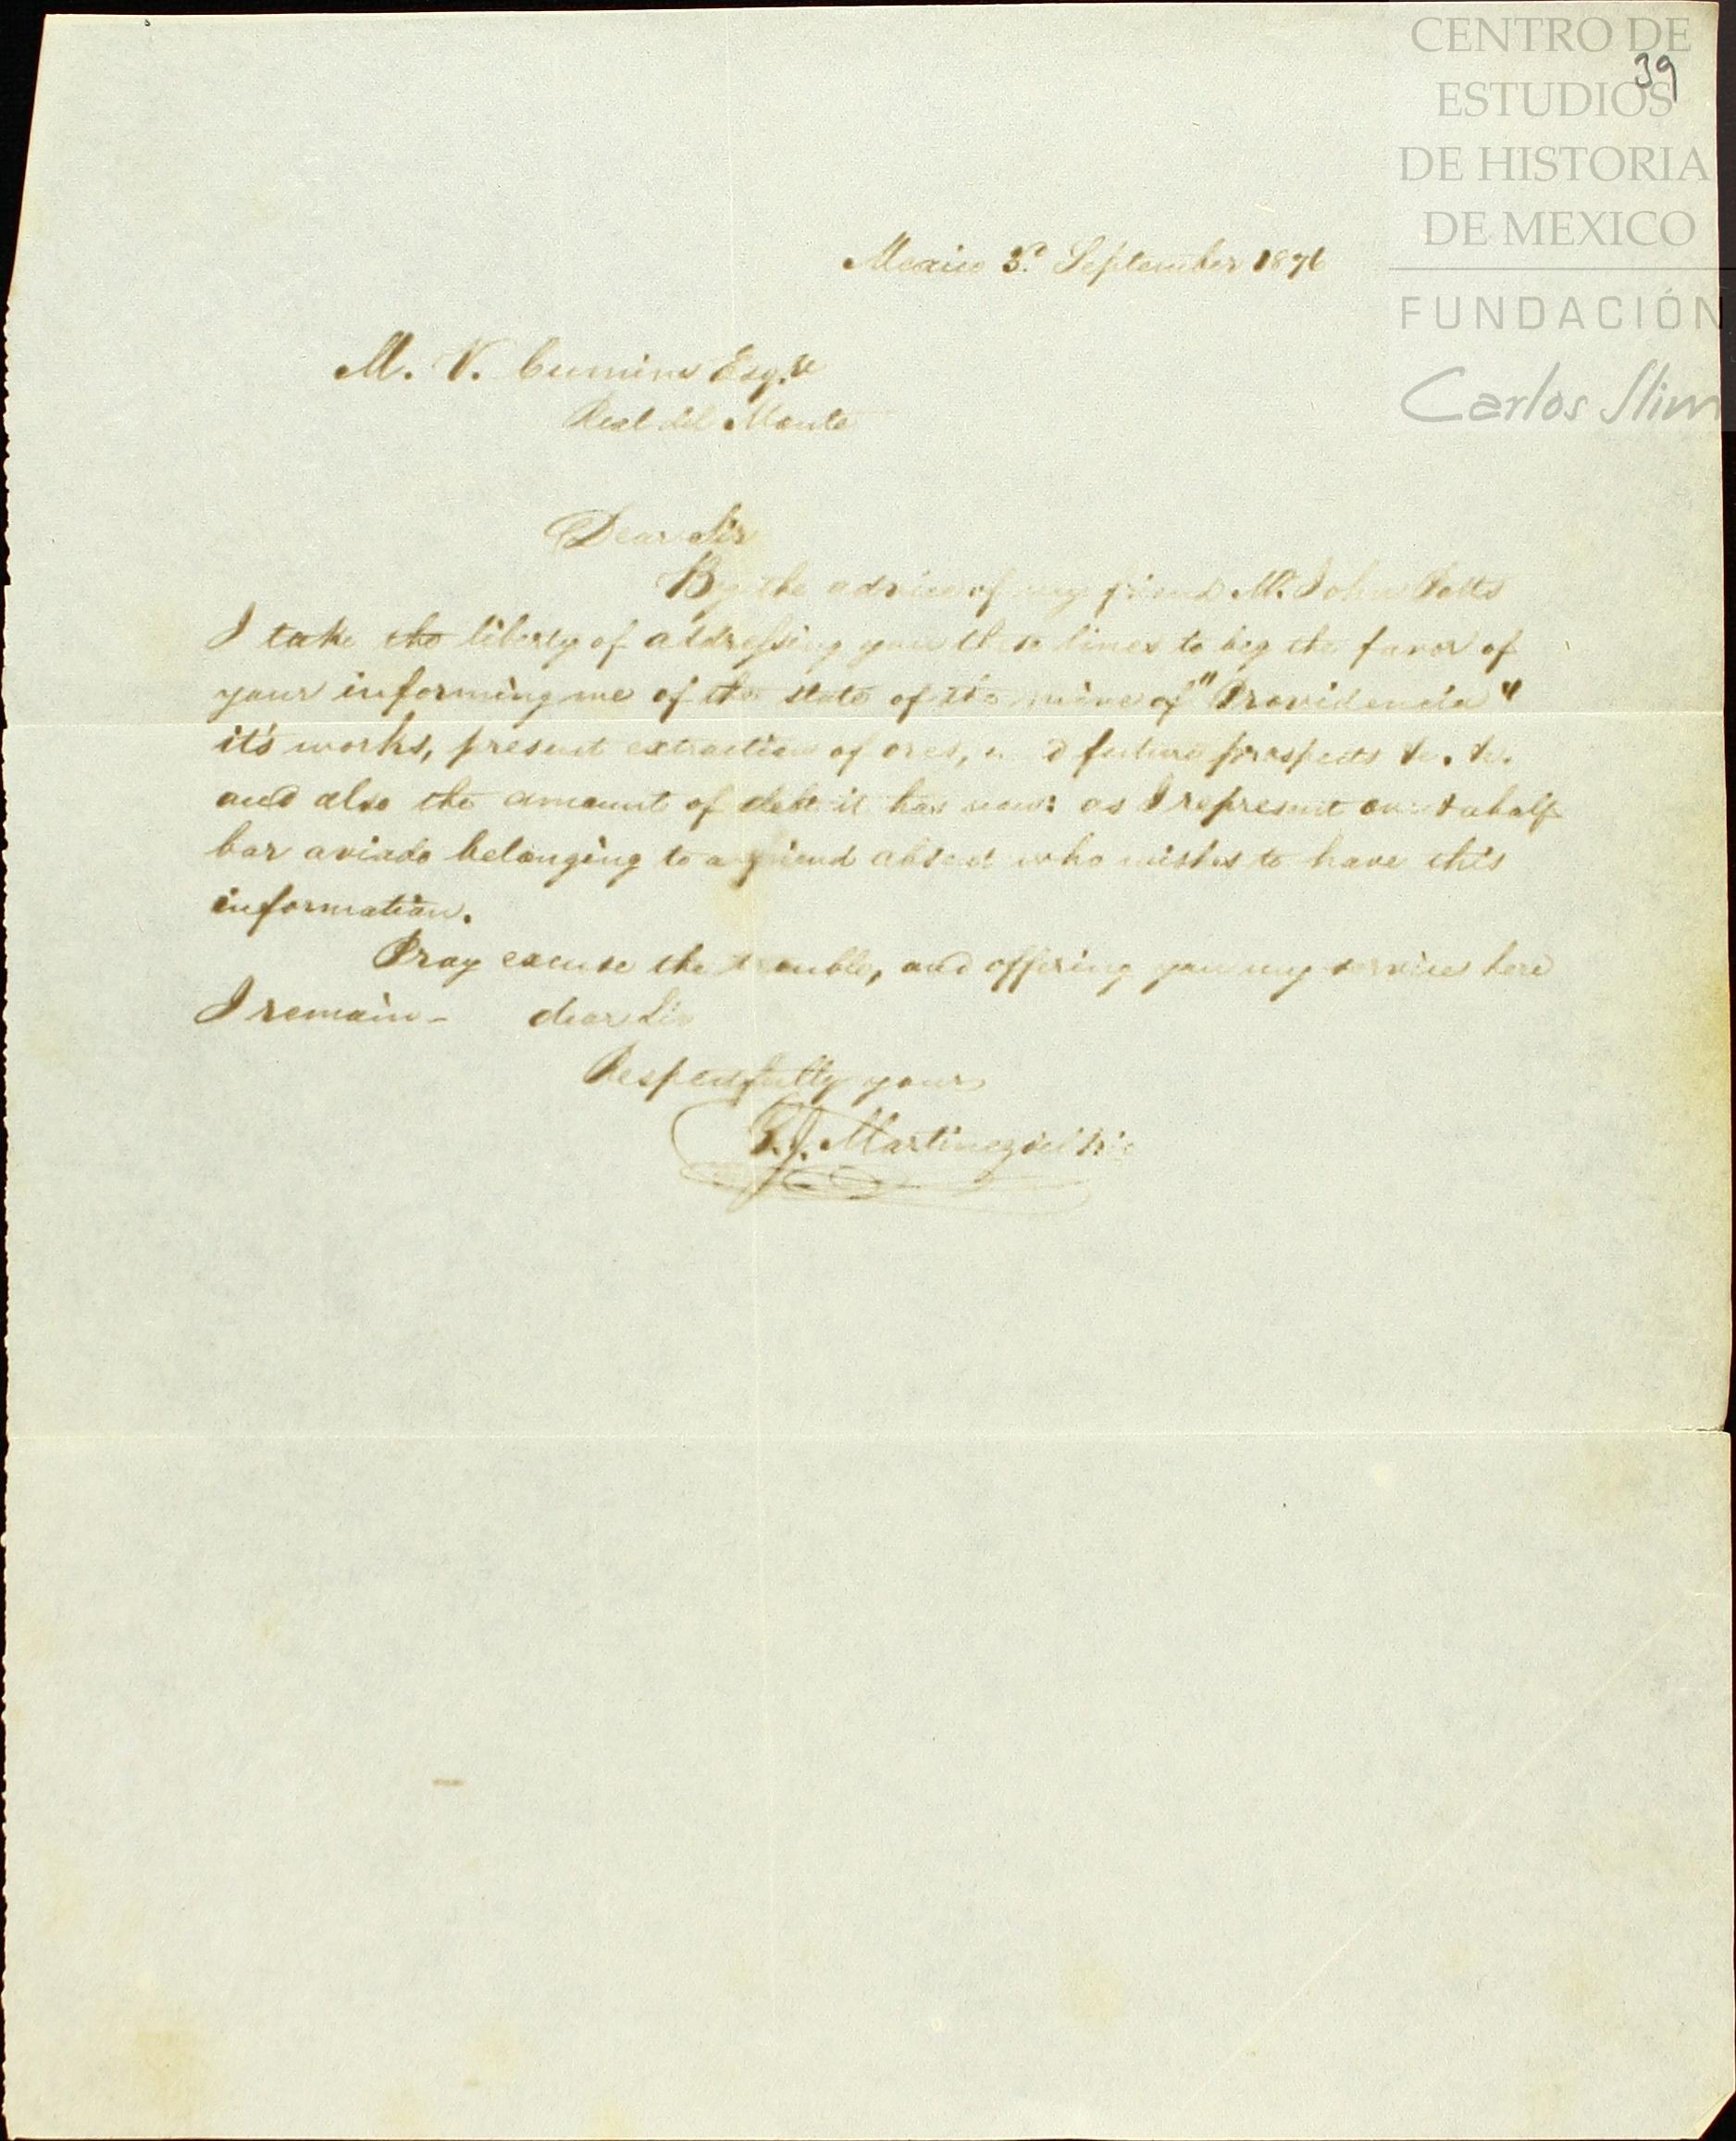 CENTRO DE
39
ESTUDIOS
DE HISTORIA
DE MEXICO
FUNDACIÓN
Carlos Slim
Mexico 3.d September 1876
M. V. Cumins Esq.re
Real del Monte
Dear Sir
By the advice of my friend M. John Potts
I take the liberty of addressing you these lines to beg the favor of
your informing me of the state of the mine of "Providencia"
it's works, present extraction of ores, and future prospects &c. &c.
and also the amount of debt it has now: as I represent one & a half
bar aviada belonging to a friend absent who wishes to have this
information.
Pray excuse the trouble, and offering you my services here
I remain - dear Sir
Respectfully yours
J. Martinez del Rio